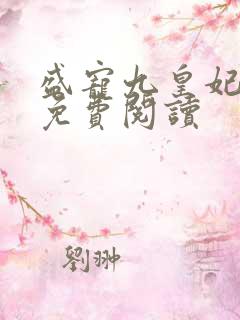 盛寵九皇妃
免費閱讀
劉翀